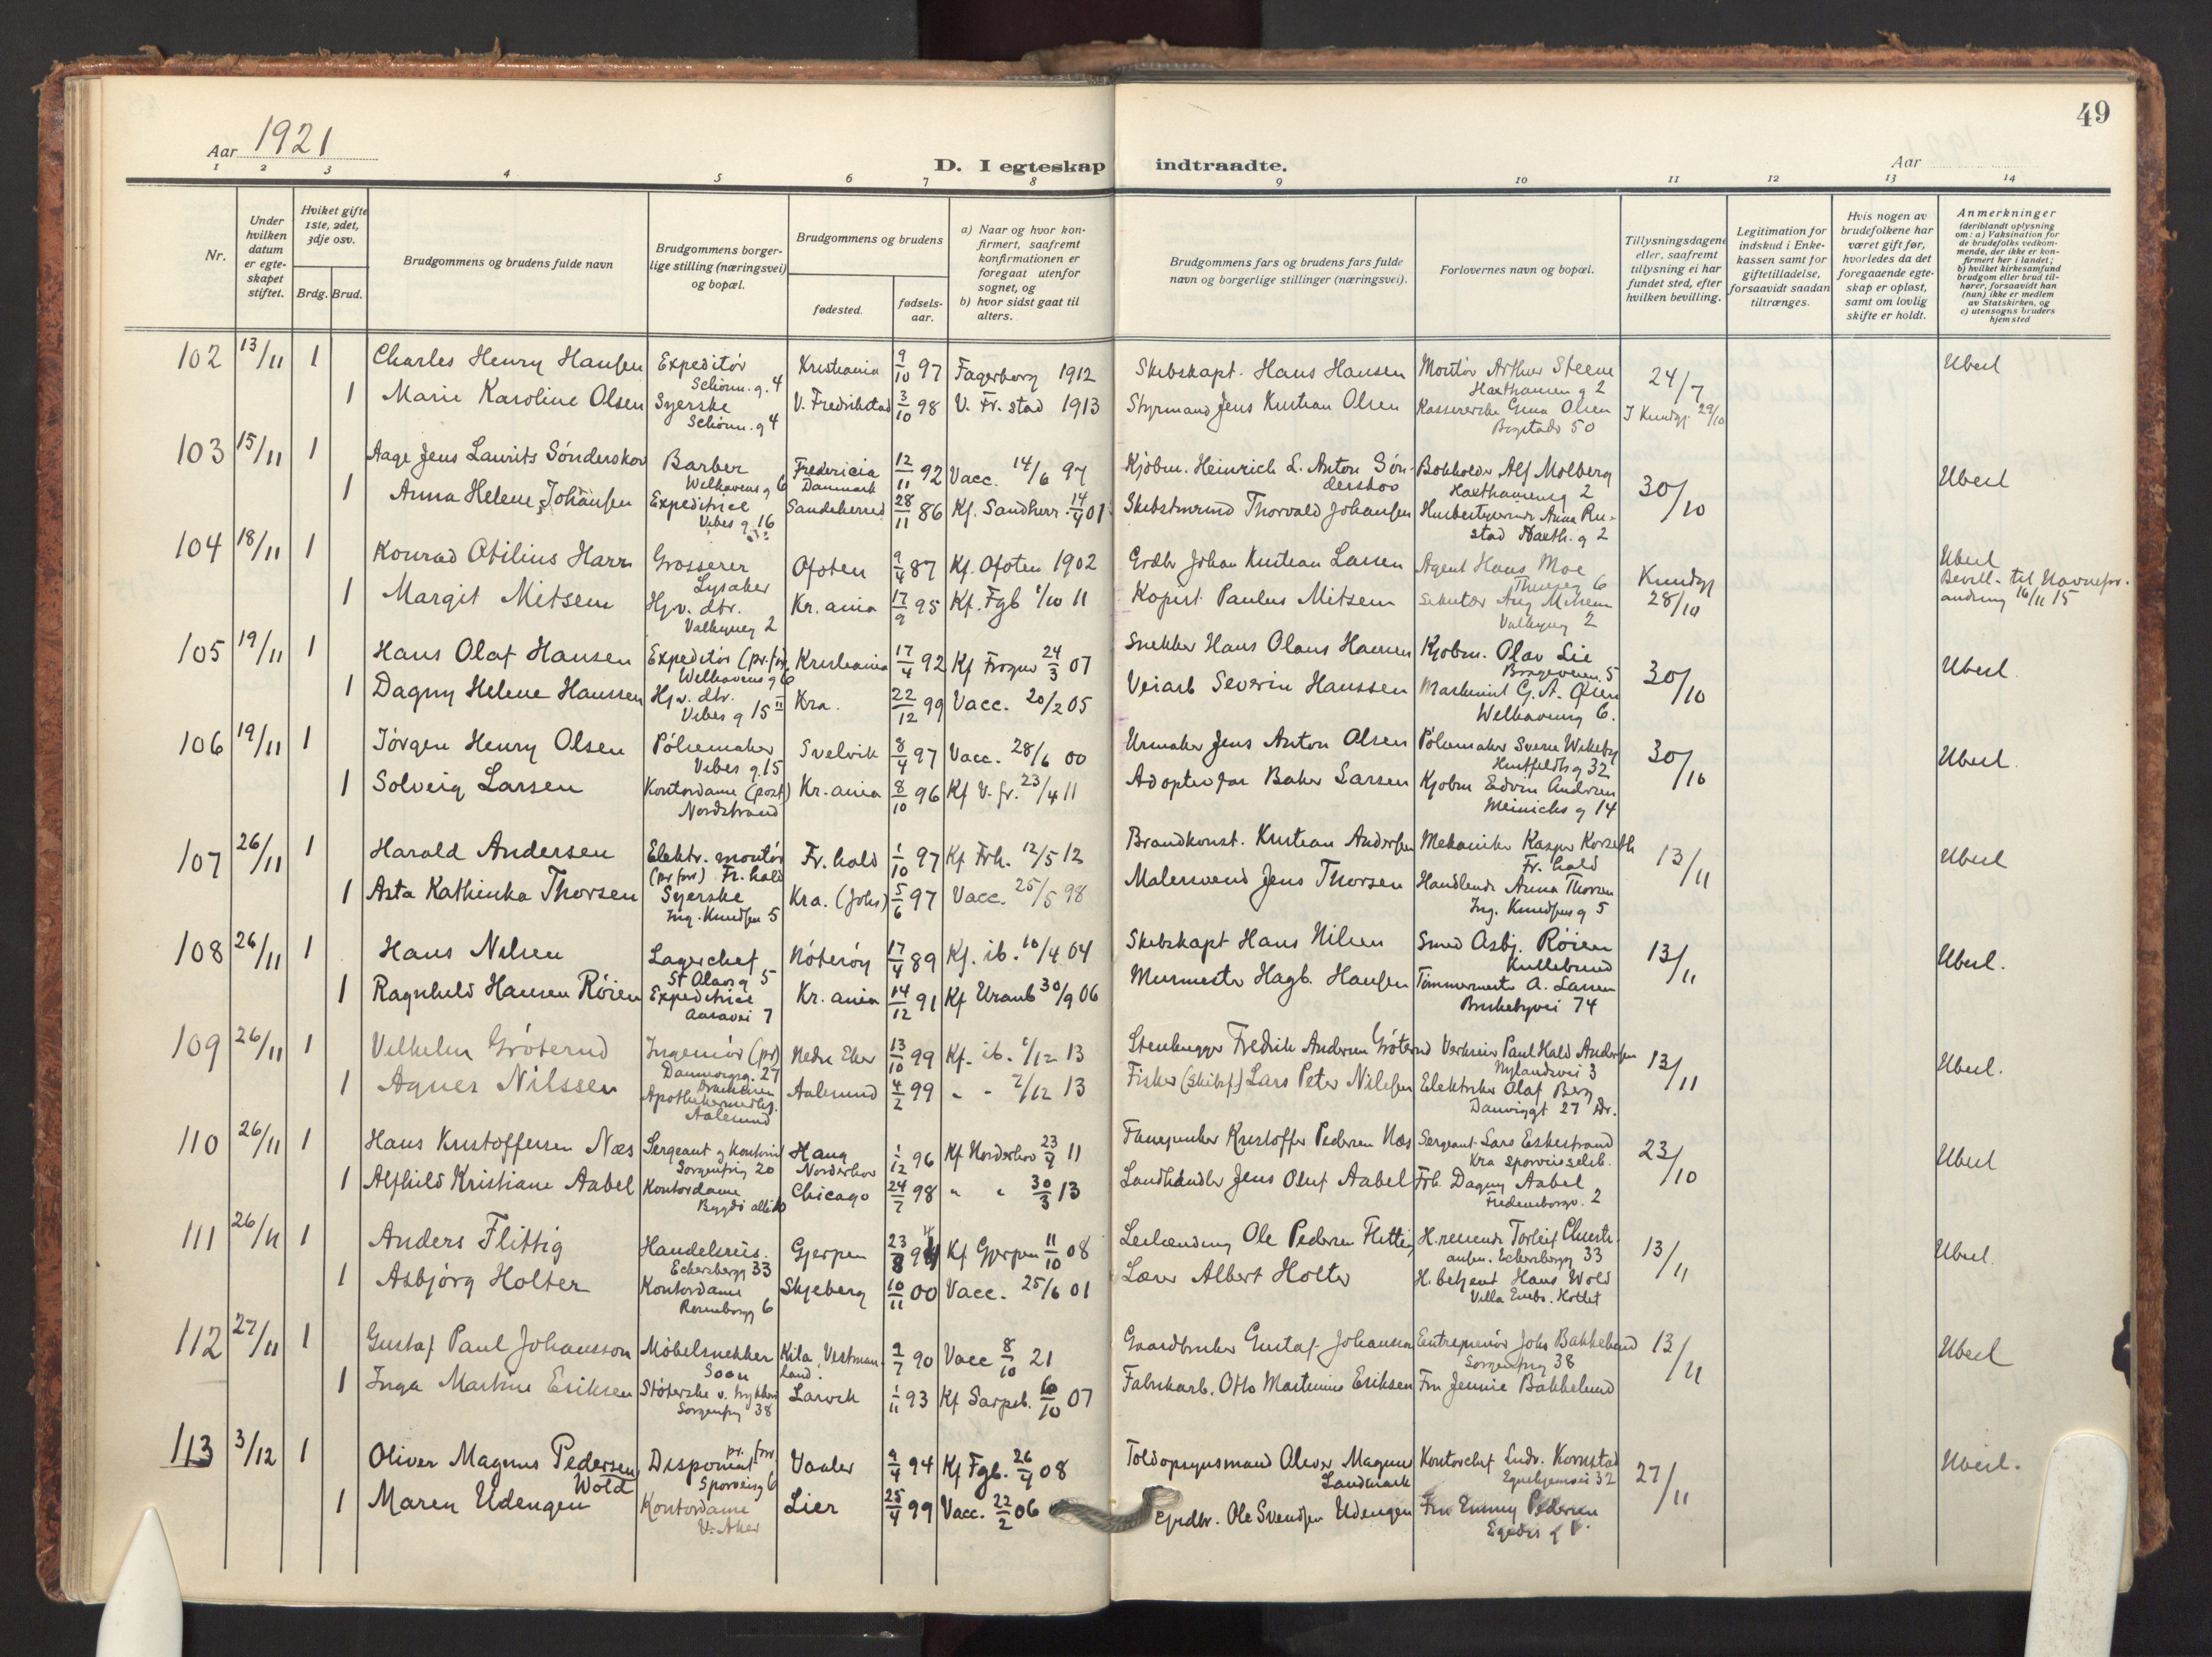 49
Aar 1921
D. I egteskap indtraadte.
Aar
1 2 3 4 5 6 7 8 9 10 11 12 13 14
Nr.
Under hvilken datum er egteskapet stiftet.
Hvilket gifte 1ste, 2det, 3dje osv.
Brdg. Brud.
Brudgommens og brudens fulde navn
Brudgommens borgerlige stilling (næringsvei) og bopæl.
Brudgommens og brudens
fødested.
fødselsaar.
a) Naar og hvor konfirmert, saafremt konfirmationen er foregaat utenfor sognet, og
b) hvor sidst gaat til alters.
Brudgommens fars og brudens fars fulde navn og borgerlige stillinger (næringsvei).
Forlovernes navn og bopæl.
Tillysningsdagene eller, saafremt tillysning ei har fundet sted, efter hvilken bevilling.
Legitimation for indskud i Enkekassen samt for giftetilladelse, forsaavidt saadan tiltrænges.
Hvis nogen av brudefolkene har været gift før, hvorledes da det foregaaende egteskap er opløst, samt om lovlig skifte er holdt.
Anmerkninger (deriblandt oplysning om: a) Vaksination for de brudefolks vedkommende, der ikke er konfirmert her i landet; b) hvilket kirkesamfund brudgom eller brud tilhører, forsaavidt han (hun) ikke er medlem av Statskirken, og c) utensogns bruders hjemsted
102 13/11 1 Charles Henry Hansen Expeditør Schönn. g. 4 Kristiania 9/10 97 Fagerborg 1912 Skibskapt. Hans Hansen Montør Arthur Steene Haxthausen g 2 24/7 Ubesl
1 Marie Karoline Olsen Syerske Schönn. g 4 V. Fredrikstad 3/10 98 V. Fr. stad 1913 Styrmand Jens Kristian Olsen Olsen Bogstadv 50 29/10
103 15/11 1 Aage Jens Laurits Sønderskov Barber Welhavens g 6 Fredericia Danmark 12/11 92 Vacc. 14/6 97 Kjøbm. Heinrich L. Anton Sønderskov Bokholder Alf Molberg Haxthauseng 2 30/10 Ubesl
1 Anna Helene Johansen Expeditrice Vibes g. 16 Sandeherred 28/11 86 Kf. Sandherr. 14/4 01 Thorvald Johansen Anna Rustad Haxth. g 2
104 18/11 1 Konrad Otilius Harr Grosserer Lysaker Ofoten 9/4 87 Kf. Ofoten 1902 Grdbr Johan Kristian Larsen Agent Hans Moe 6 Kundgj 28/10 Ubesl Bevill. til Navneforandring 16/11 15
1 Margit Mitsem Hjv. dtr. Valkyrieg 2 Kr.ania 17/9 95 Kf. Fgb 1/10 11 Kopist Paulus Mitsem Mitsem Valkyrieg 2
105 19/11 1 Hans Olaf Hansen Expeditør (pr. for) Welhavens g 6 Kristiania 17/4 92 Kf Frogner 24/3 07 Snekker Hans Olaus Hansen Kjøbm. Olav Lie 5 30/10 Ubesl.
1 Dagny Helene Hanssen Hjv. dtr. Vibes g 15 II Kra. 22/12 99 Vacc. 20/2 05 Veiarb Severin Hanssen Maskinist G. A. Olsen Welhaveng 6.
106 19/11 1 Jørgen Henry Olsen Pølsemaker Vibes g. 15 Svelvik 8/4 97 Vacc. 28/6 00 Urmaker Jens Anton Olsen Pølsemaker Sverre Wikeby Huitfeldts g 32 30/10 Ubesl.
1 Solveig Larsen Kontordame (post) Nordstrand Kr.ania 8/10 96 Kf V. fr. 23/4 11 Adoptivfar Baker Larsen Kjøbm Edvin Andersen Meinichs g 14
107 26/11 1 Harald Andersen Elektr. montør (pr for) Fr. hald Fr. hald 1/10 97 Kf Frh. 12/5 12 Brandkonst. Kristian Andersen Mekaniker Kasper Korseth Fr. hald 13/11 Ubesl
1 Asta Kathinka Thorsen Syerske Ing. Knudsen 5 Kra. (Johs) 5/6 97 Vacc. 25/5 98 Malersvend Jens Thorsen Handlende Anna Thorsen Ing. Knudsens g 5
108 26/11 1 Hans Nilsen Lagerchef St Olavs g 5 Nøterøy 17/4 89 Kf. ib. 10/4 04 Skibskapt Hans Nilsen Smed Asbj. Røien Kullebund 13/11 Ubesl.
1 Ragnhild Hansen Røien Expeditrice Aasavei 7 Kr.ania 14/12 91 Kf Uranb 30/9 06 Murmester Hagb. Hansen Tømmermester A. Larsen Briskebyvei 74
109 26/11 1 Vilhelm Grøterud Ingeniør (pr) Danmarsg. 27 Drammen Nedre Eker 13/10 99 Kf. ib. 1/12 13 Stenhugger Fredrik Andersen Grøterud Paul Hald Andersen Nylandsvei 3 13/11 Ubesl.
1 Agnes Nilssen Apothekermedhj. Aalesund Aalesund 4/2 99 " " 7/12 13 Fisker (skibsf) Lars Peter Nilssen Elektriker Olaf Berg Danvigg 27 Dr.
110 26/11 1 Hans Kristoffersen Næs Sergeant og Kontorist Sorgenfrig 20 Haug Norderhov 1/12 96 Kf Norderhov 23/4 11 Fanejunker Kristoffer Pedersen Næs Sergeant Lars Eskestrand Kra sporveisselsk. 23/10 Ubesl
1 Alfhild Kristiane Aabel Kontordame Bygdø allé Chicago 24/7 98 " " 30/3 13 Landhandler Jens Oluf Aabel Frk. Dagny Aabel Fredensborgv. 2
111 26/11 1 Anders Flittig Handelsreis. Eckersbergg 33 Gjerpen 23/8 94 Kf Gjerpen 11/10 08 Ole Pedersen Flittig H.reisende Torleif Christiansen. Eckersbergg 33 13/11 Ubesl.
1 Asbjørg Holter Kontordame Rosenborgg 6 Skjeberg 10/11 00 Vacc. 25/6 01 Lærer Albert Holter H. betjent Hans Wold Villa
112 27/11 1 Gustaf Paul Johansson Møbelsnekker Soon Kila, Vestmanland. 2/7 90 Vacc 8/10 21 Gaardbruker Gustaf Johansson Entreprenør Johs Bakkelund Sorgenfrig 38 13/11 Ubesl
1 Inga Martine Eriksen Sorgenfrig 38 Larvik 1/11 93 Kf Sarpsb. 6/10 07 Fabrikarb. Otto Martinius Eriksen Fru Jennie Bakkelund
113 3/12 1 Oliver Magnus Pedersen Wold Disponent pr. for Sporveisg 6 Vaaler 9/4 94 Kf Fgb. 26/4 08 Toldopsynsmand Oliver Magnus Landmark Kontorchef Ludv. Kornstad 32 27/11 Ubesl.
1 Maren Udengen Kontordame V. Aker Lier 25/4 99 Vacc. 22/2 06 Grdbr. Ole Svendsen Udengen Fru Emmy Pedersen Egedes g